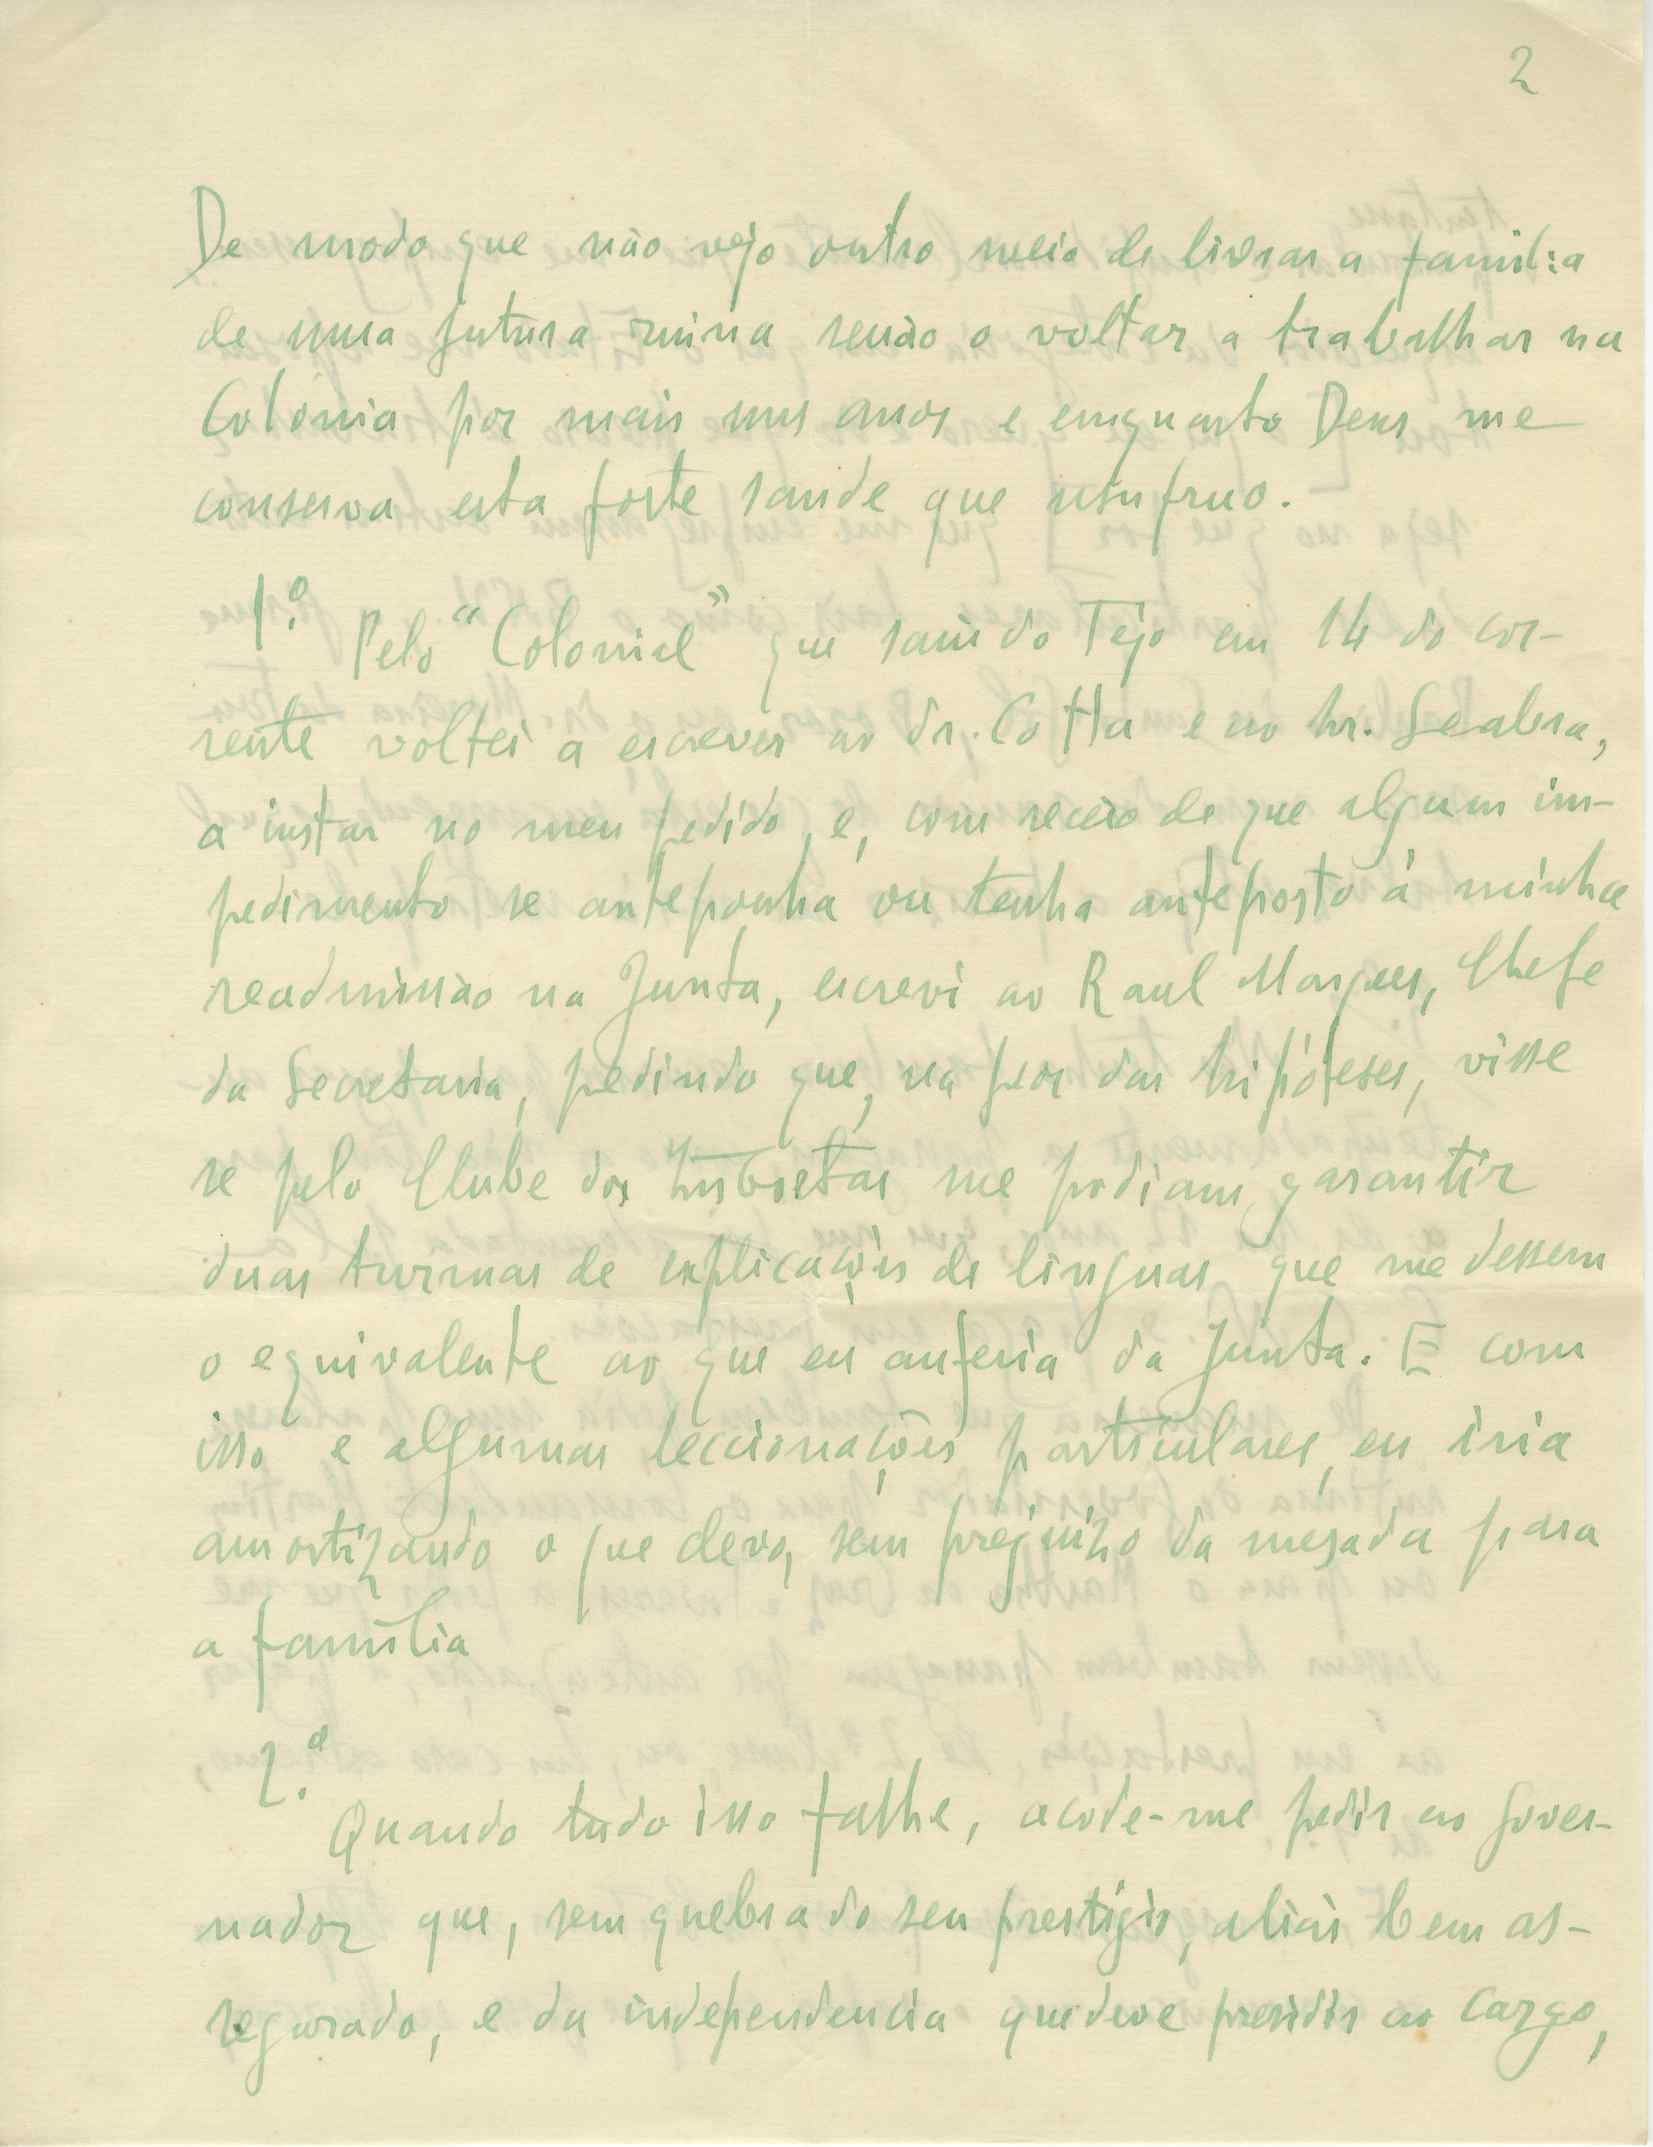 2
De modo que não vejo outro meio de livrar a familia
de uma futura ruina senão o voltar a trabalhar na
Colónia por mais uns anos e emquanto Deus me
conserva esta forte saude que usufruo.
1.º Pelo "Colonial" que saiu do Tejo em 14 do cor-
rente voltei a escrever ao dr. Cotta e ao sr. Seabra,
a instar no meu pedido, e, com receio de que algum im-
pedimento se anteponha ou tenha anteposto á minha
readmissão na Junta, escrevi ao Raul Marques, Chefe
da Secretaria, pedindo que, na peor das hipóteses, visse
se pelo Clube dos me podiam garantir
duas turmas de explicações de linguas que me dessem
o equivalente ao que eu auferia da Junta. E com
isso e algumas leccionações particulares, eu iria
amortizando o que devo, sem prejuizo da mesada para
a família
2.º
Quando tudo isso falhe, acode-me pedir ao Gover-
nador que, sem quebra do seu prestigio, aliás bem as-
segurado, e da independencia que deve presidir ao cargo,